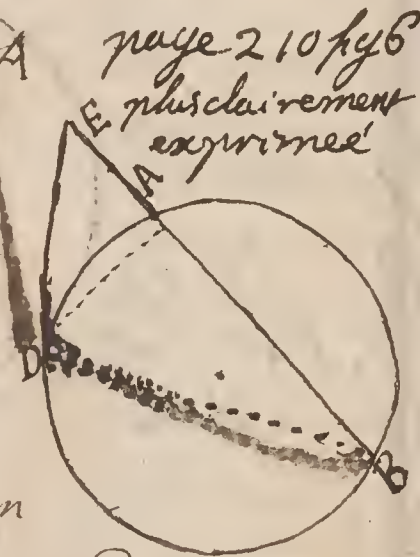 A
page 210 fig 6
plus clairement
exprimeé
E
A
D
B
n